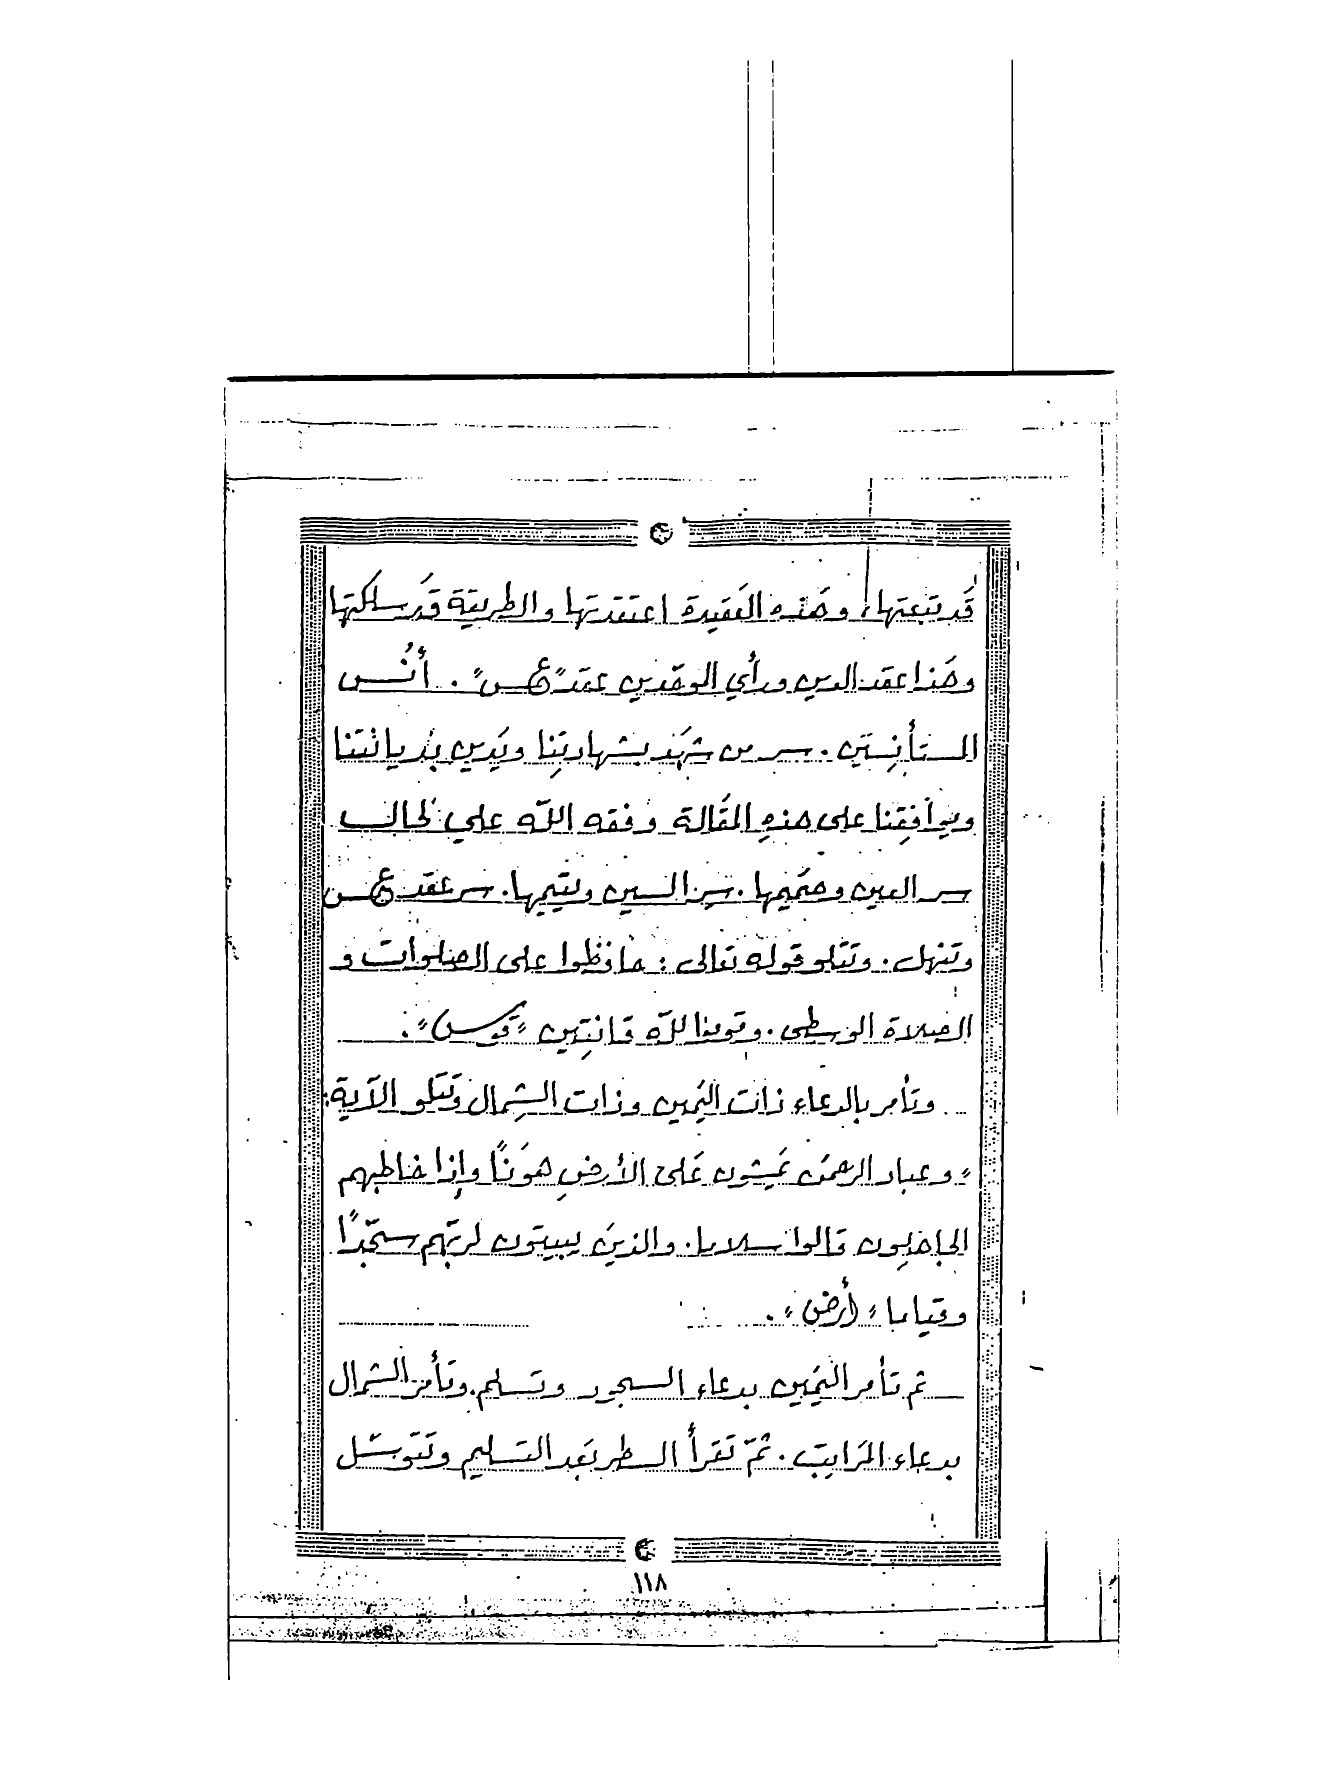 قَد تبعتها، وهَذه العَقيدة اعتقدتها والطريقة قَد سلكتها
وهَذا عقد الدين ورأي الموحّدين عقد " ع م س ". أُنُس
المستأنِسَين. سر من شهَد بشهادتِنا ويَدين بديانتنا
ويوافِقنا على هذهِ المقَالة وفقه اللّه على
سر العين وصَميمها. سِر السين ويتيمها. سر عقد ع م س
وتنهل. وتتلو قوله تعالى: حافظوا على الصلوات و
الصلاة الوسطى. وقوموا للّه قانتِين " ".
وتأمر بالدعاء ذات اليَمين وذات الشِمال وتَتلو الآية:
" وعباد الرحمن يَمشون عَلى الأرضِ هوَناً وإذا خاطبهم
الجاهِلون قالوا سلاما. والذينَ يبيتون لربّهم سجّداً
وقياما " أرض ".
ثم تأمر اليَمين بدعاء السجود وتسلم. وتأمر الشمال
بدعاء المَراتِب. ثمّ تَقرأ السطر بَعد التسليم وتَتَوسّل
١١٨